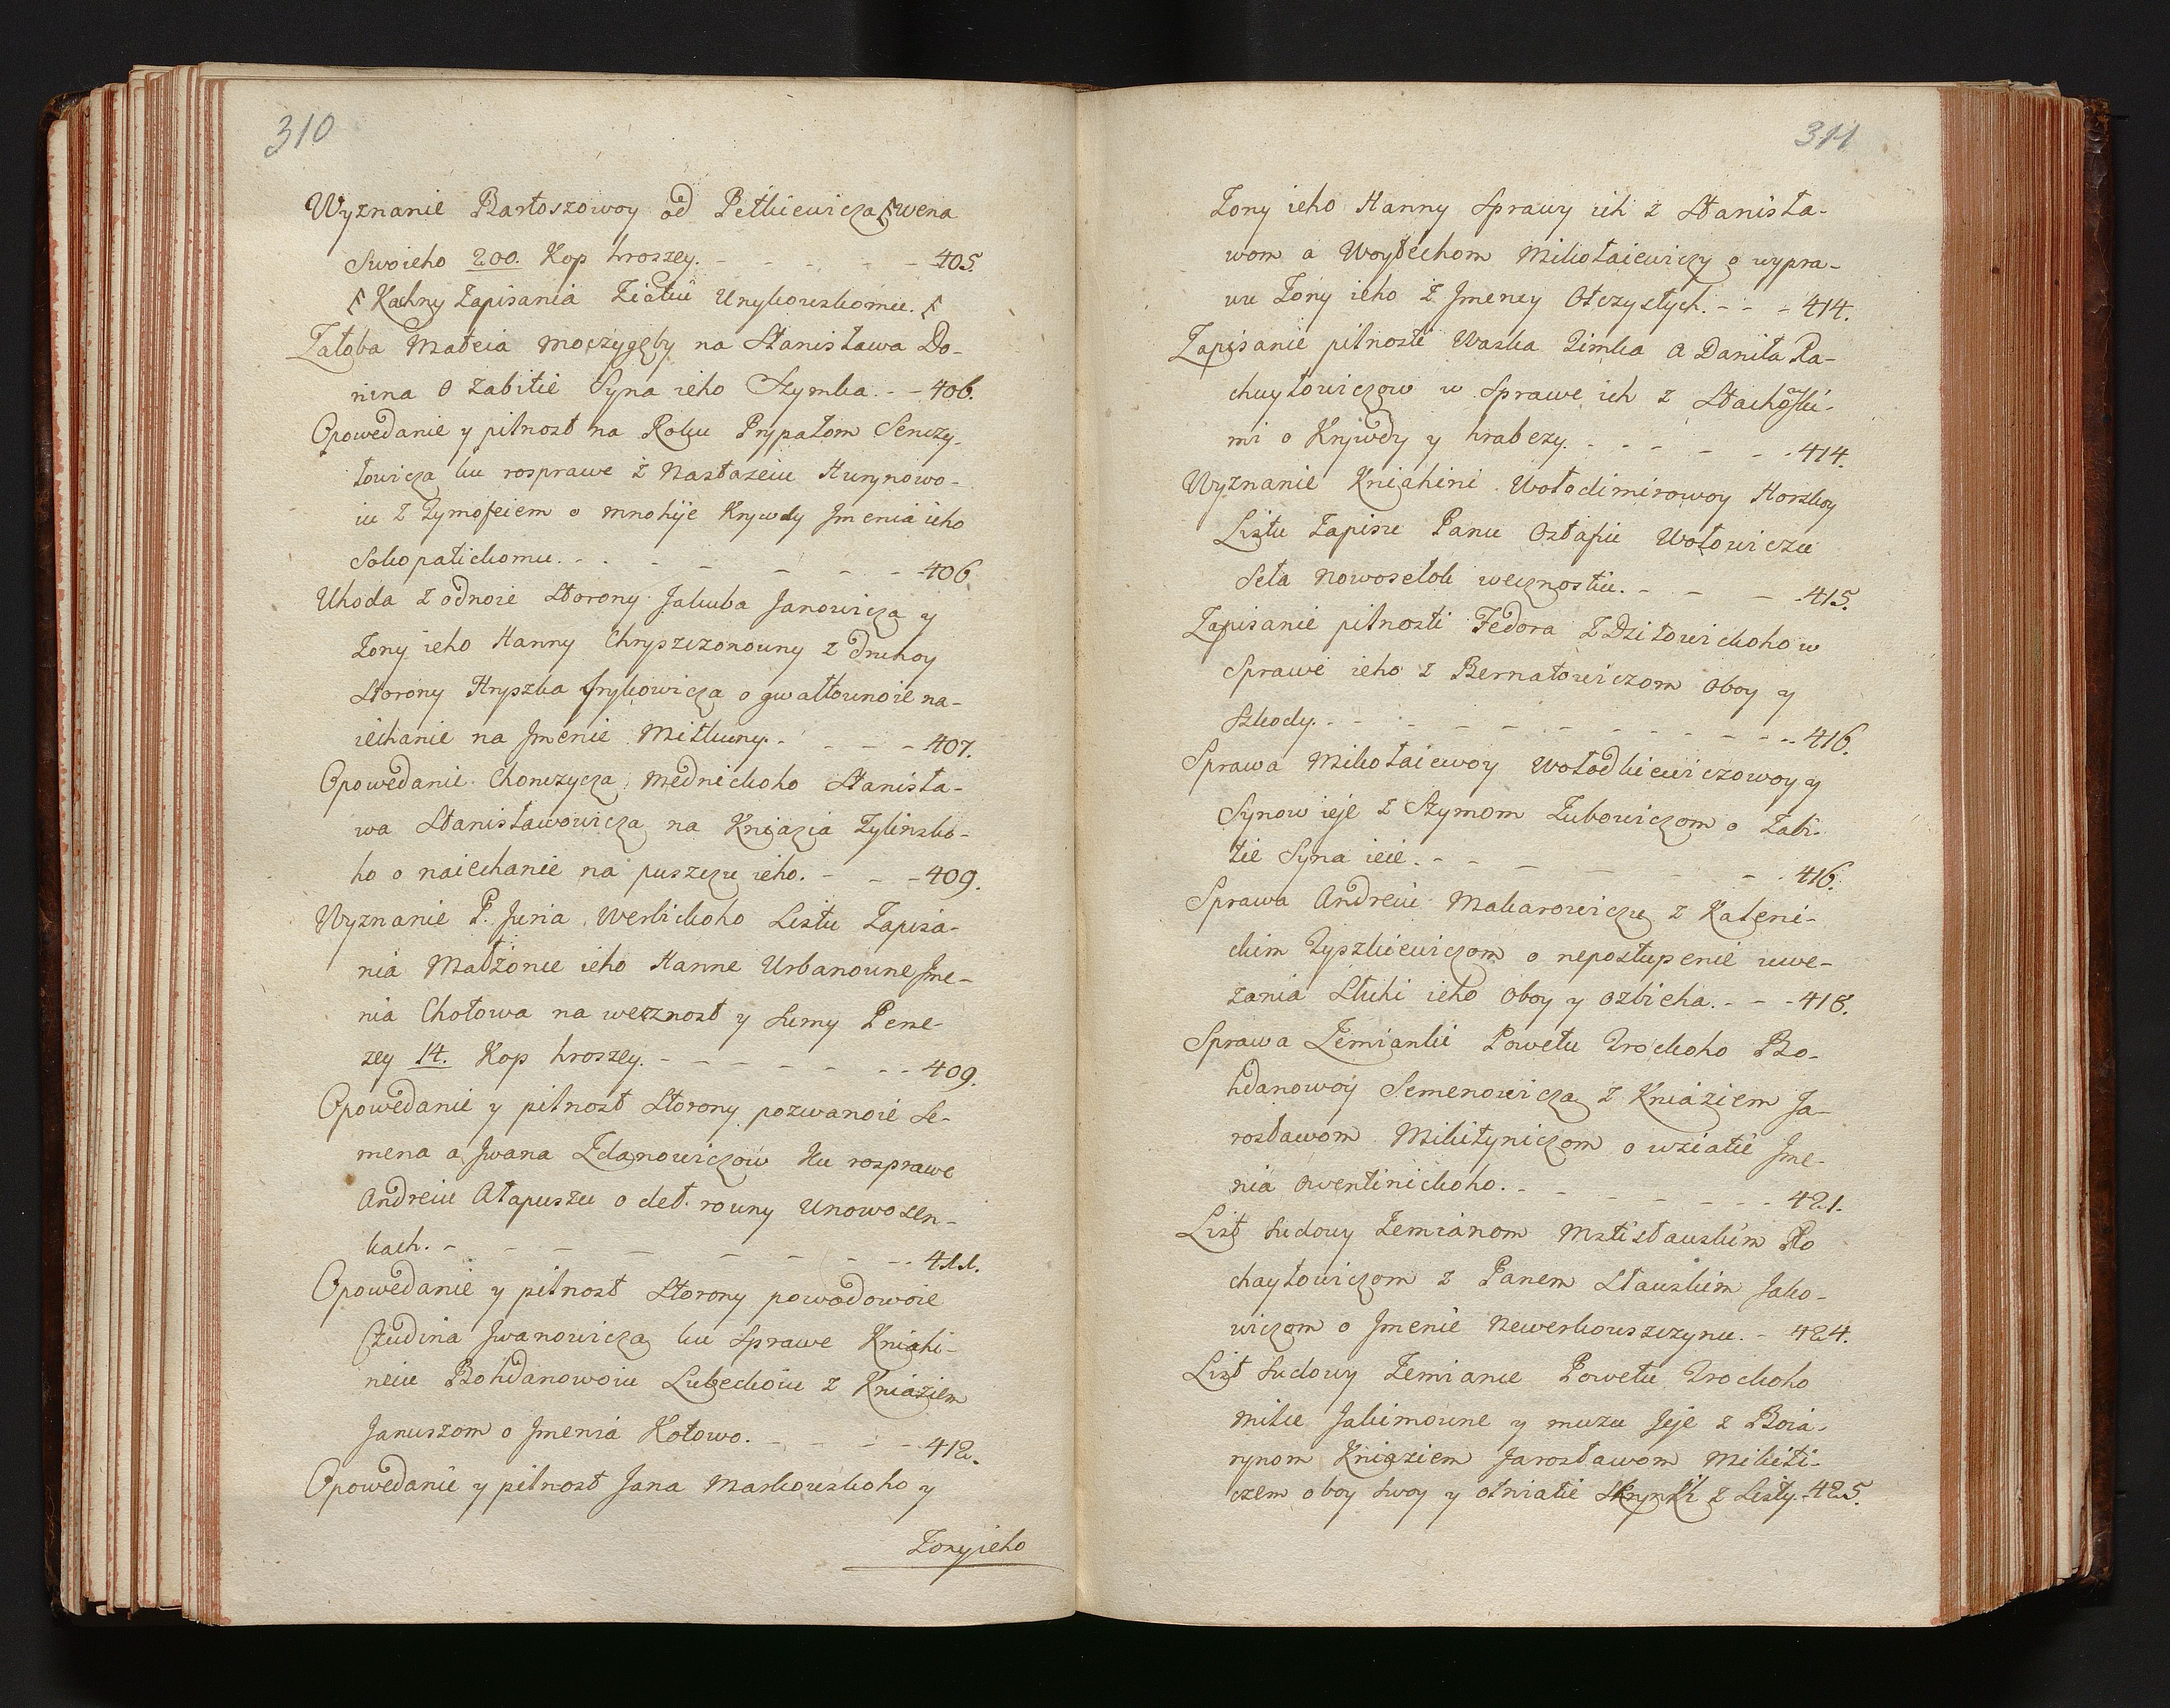 310
Wyznanie Bartoszowoy od Petkiewicza ⌈wena
Swoieho 200. Kop hroszey. - - - - - - 405.
⌈ Kachny Zapisania Ziatiu Unykouskomu. ⌈
Załoba Mateia Moczygęby na Stanisława Do-
nina o zabitie Syna ieho Szymka. - - 406.
Opowedanie y pilnost na Roku Prypatom Senczy-
łowicza ku rosprawe z Nastazeiu Hurynowo-
iu z Tymofeiem o mnohije Krywdy Jmenia ieho
Sokopatickomu. - - - - - - - 406
Uhoda z odnoie Storony Jakuba Janowicza y
Zony ieho Hanny Chryszczonouny z druhoy
Storony Hryszka Jrykowicza o gwałtounoie na-
iechanie na Jmenie Mitkuny. - - - - 407.
Opowedanie Chonzycza Mednickoho Stanisła-
wa Stanisławowicza na Kniazia Zylinsko-
ho o naiechanie na puszczu ieho. - - - 409.
Wyznanie P. Juria Werbickoho Listu Zapisa-
nia Małżonce ieho Hanne Urbanoune Jme-
nia Chotowa na wecznost y sumy Pene-
zey 14. Kop hroszey. - - - - - - 409.
Opowedanie y pilnost Storony pozwanoie Se-
mena a Jwana Zdanowiczow ku rozprawe
Andreiu Atapuszu o det. rouny Unowosen-
kach. - - - - - - - - 411.
Opowedanie y pilnost Storony powodowoie
Czudina Jwanowicza ku Sprawe Kniahi-
neiu Bohdanowoiu Lubeckoiu z Kniaziem
Januszom o Jmenia Kotowo. - - - - 412.
Opowedanie y pilnost Jana Markouskoho y
Zony ieho
311
Zony ieho Hanny Sprawy ich z Stanisła-
wom a Woytechom Mikołaiewiczy o wypra-
wu Zony ieho z Jmeney Otczystych. - - - 414.
Zapisanie pilnosti Waska Zimka a Daniła Ra-
chuytowiczow w Sprawe ich z Stachoski-
mi o Krywdy y hrabezy. - - - - - 414.
Wyznanie Kniahini Wołodimirowoy Horskoy
Listu Zapisu Panu Ostafiu Wołowiczu
Seła Nowosełok wecznostiu. - - - 415.
Zapisanie pilnosti Fedora Zdzitowickoho w
Sprawe ieho z Bernatowiczom oboy y
Szkody. - - - - - - - - - 416.
Sprawa Mikołaiewoy Wołodkiewiczowoy y
Synow ieje z Szymom Zubowiczom o Zabi-
tie Syna ieie. - - - - - - 416.
Sprawa Andreiu Makarowiczu z Kaleni-
ckim Tyszkiewiczom o nepostupenie uwe-
zania Słuhi ieho oboy y ozbicha. - - - 418.
Sprawa Zemianki Powetu Trockoho Bo-
hdanowoy Semenowicza z Kniaziem Ja-
rosławom Mikityniczom o wziatie Jme-
nia Owentinickoho. - - - - - - - 421.
List Sudowy Zemianom Mstisłauskim Ro
chaytowiczom z Panem Stauskim Jako-
wiczom o Jmenie Newerkouszczynu. - 424.
List Sudowy Zemiance Powetu Trockoho
Milce Jakimoune y muzu Jeje z Boia-
rynom Kniaziem Jarosławom Mikiti-
czem o boy Swoy y otniatie Skrynki z Listy. - 425.